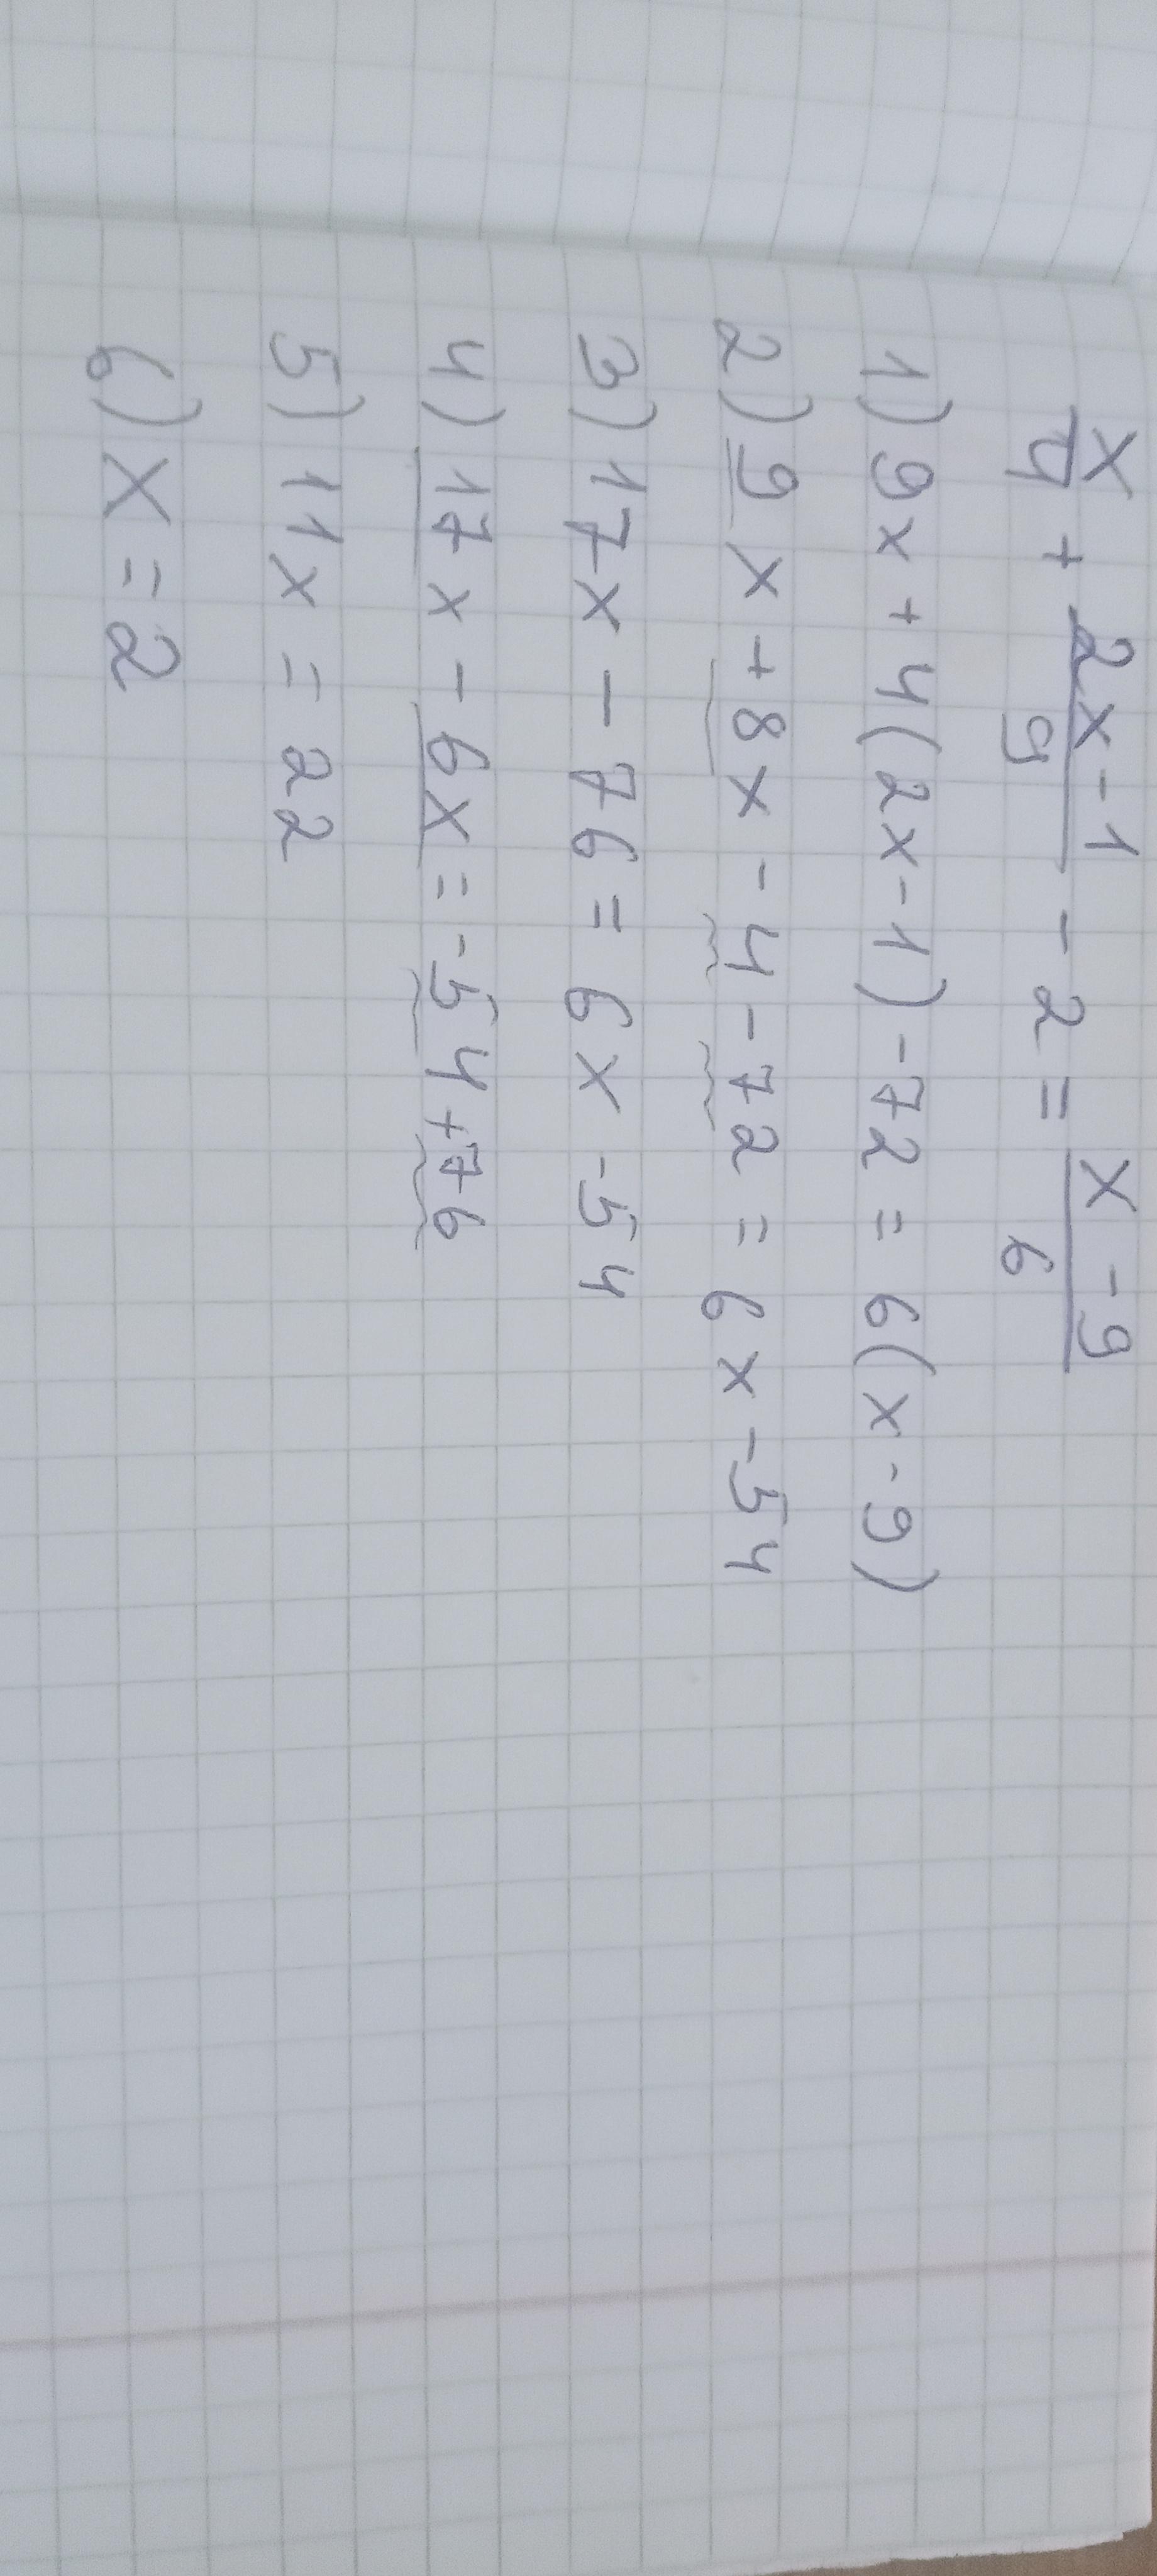 x/4 + (2x-1)/9 - 2 = (x-9)/6
1) 9x + 4(2x-1) - 72 = 6(x-9)
2) 9x + 8x - 4 - 72 = 6x - 54
3) 17x - 76 = 6x - 54
4) 17x - 6x = -54 + 76
5) 11x = 22
6) x = 2